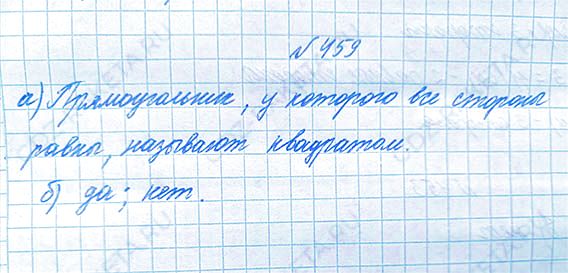 № 459
а) Прямоугольник, у которого все стороны
равны, называют квадратом.
б) да; нет.